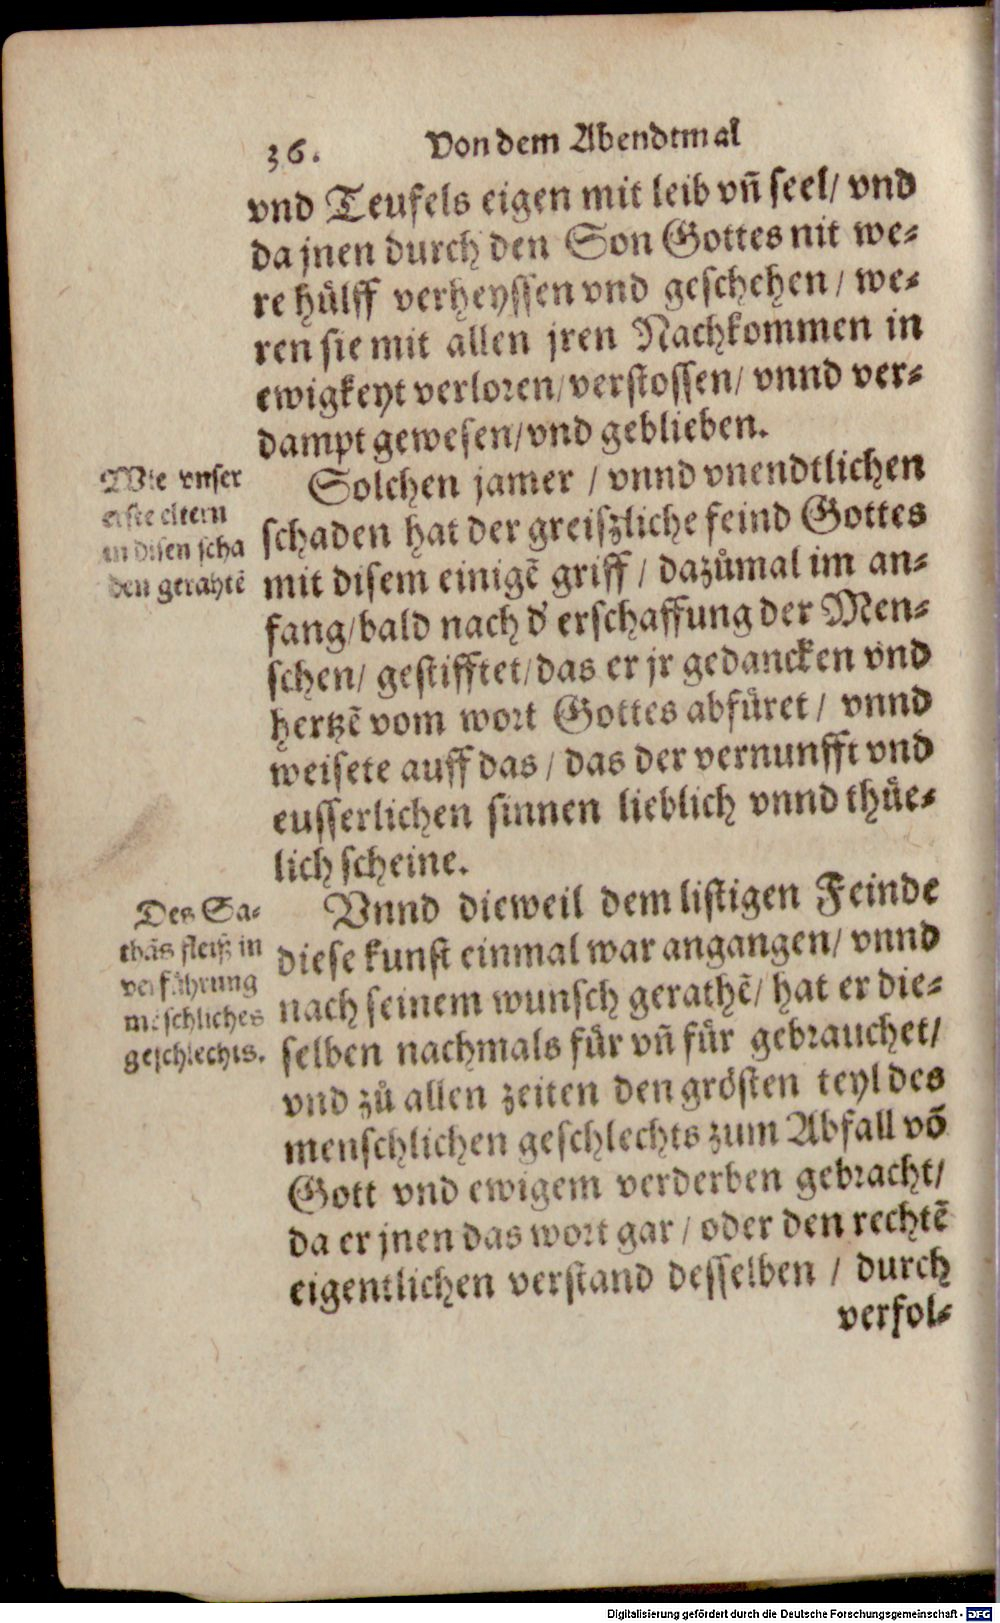 36. Von dem Abendtmal
vnd Teufels eigen mit leib vñ seel/ vnd
da jnen durch den Son Gottes nit we⸗
re hülff verheyssen vnd geschehen / we⸗
ren sie mit allen jren Nachkommen in
ewigkeyt verloren/ verstossen/ vnnd ver⸗
dampt gewesen/ vnd geblieben.
Wie vnser
erste eltern
in disen scha
den gerahtẽ
Solchen jamer / vnnd vnendtlichen
schaden hat der greiszliche feind Gottes
mit disem einigẽ griff / dazůmal im an⸗
fang/ bald nach d' erschaffung der Men⸗
schen/ gestifftet/ das er jr gedancken vnd
hertzẽ vom wort Gottes abfüret / vnnd
weisete auff das / das der vernunfft vnd
eusserlichen sinnen lieblich vnnd thüe⸗
lich scheine.
Des Sa⸗
thãs fleiß in
verführung
mẽschliches
geschlechts.
Vnnd dieweil dem listigen Feinde
diese kunst einmal war angangen/ vnnd
nach seinem wunsch gerathẽ/ hat er die⸗
selben nachmals für vñ für gebrauchet/
vnd zů allen zeiten den grösten teyl des
menschlichen geschlechts zum Abfall võ
Gott vnd ewigem verderben gebracht/
da er jnen das wort gar / oder den rechtẽ
eigentlichen verstand desselben / durch
verfol⸗
Digitalisierung gefördert durch die Deutsche Forschungsgemeinschaft - DFG